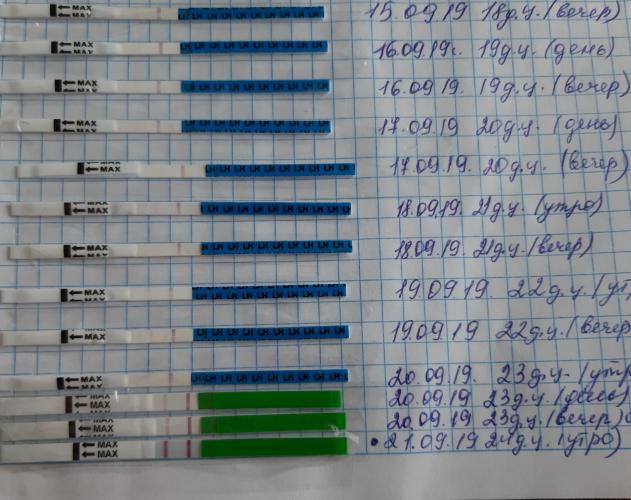 MAX LH LH LH LH LH LH LH LH LH LH 15.09.19 18д.ц. (вечер)
MAX LH LH LH LH LH LH LH LH LH LH 16.09.19г. 19д.ц. (день)
MAX LH LH LH LH LH LH LH LH LH LH 16.09.19. 19д.ц. (вечер)
MAX LH LH LH LH LH LH LH LH LH LH 17.09.19 20д.ц. (день)
MAX LH LH LH LH LH LH LH LH LH LH 17.09.19. 20д.ц. (вечер)
MAX LH LH LH LH LH LH LH LH LH LH 18.09.19. 21д.ц. (утро)
MAX LH LH LH LH LH LH LH LH LH LH 18.09.19. 21д.ц. (вечер)
MAX LH LH LH LH LH LH LH LH LH LH 19.09.19. 22д.ц. (ут
MAX LH LH LH LH LH LH LH LH LH LH 19.09.19 22д.ц. (вечер
MAX LH LH LH LH LH LH LH LH LH LH 20.09.19. 23д.ц. (утро
MAX 20.09.19. 23д.ц. (день)
MAX 20.09.19 23д.ц. (вечер)
MAX 21.09.19 24д.ц. (утро)